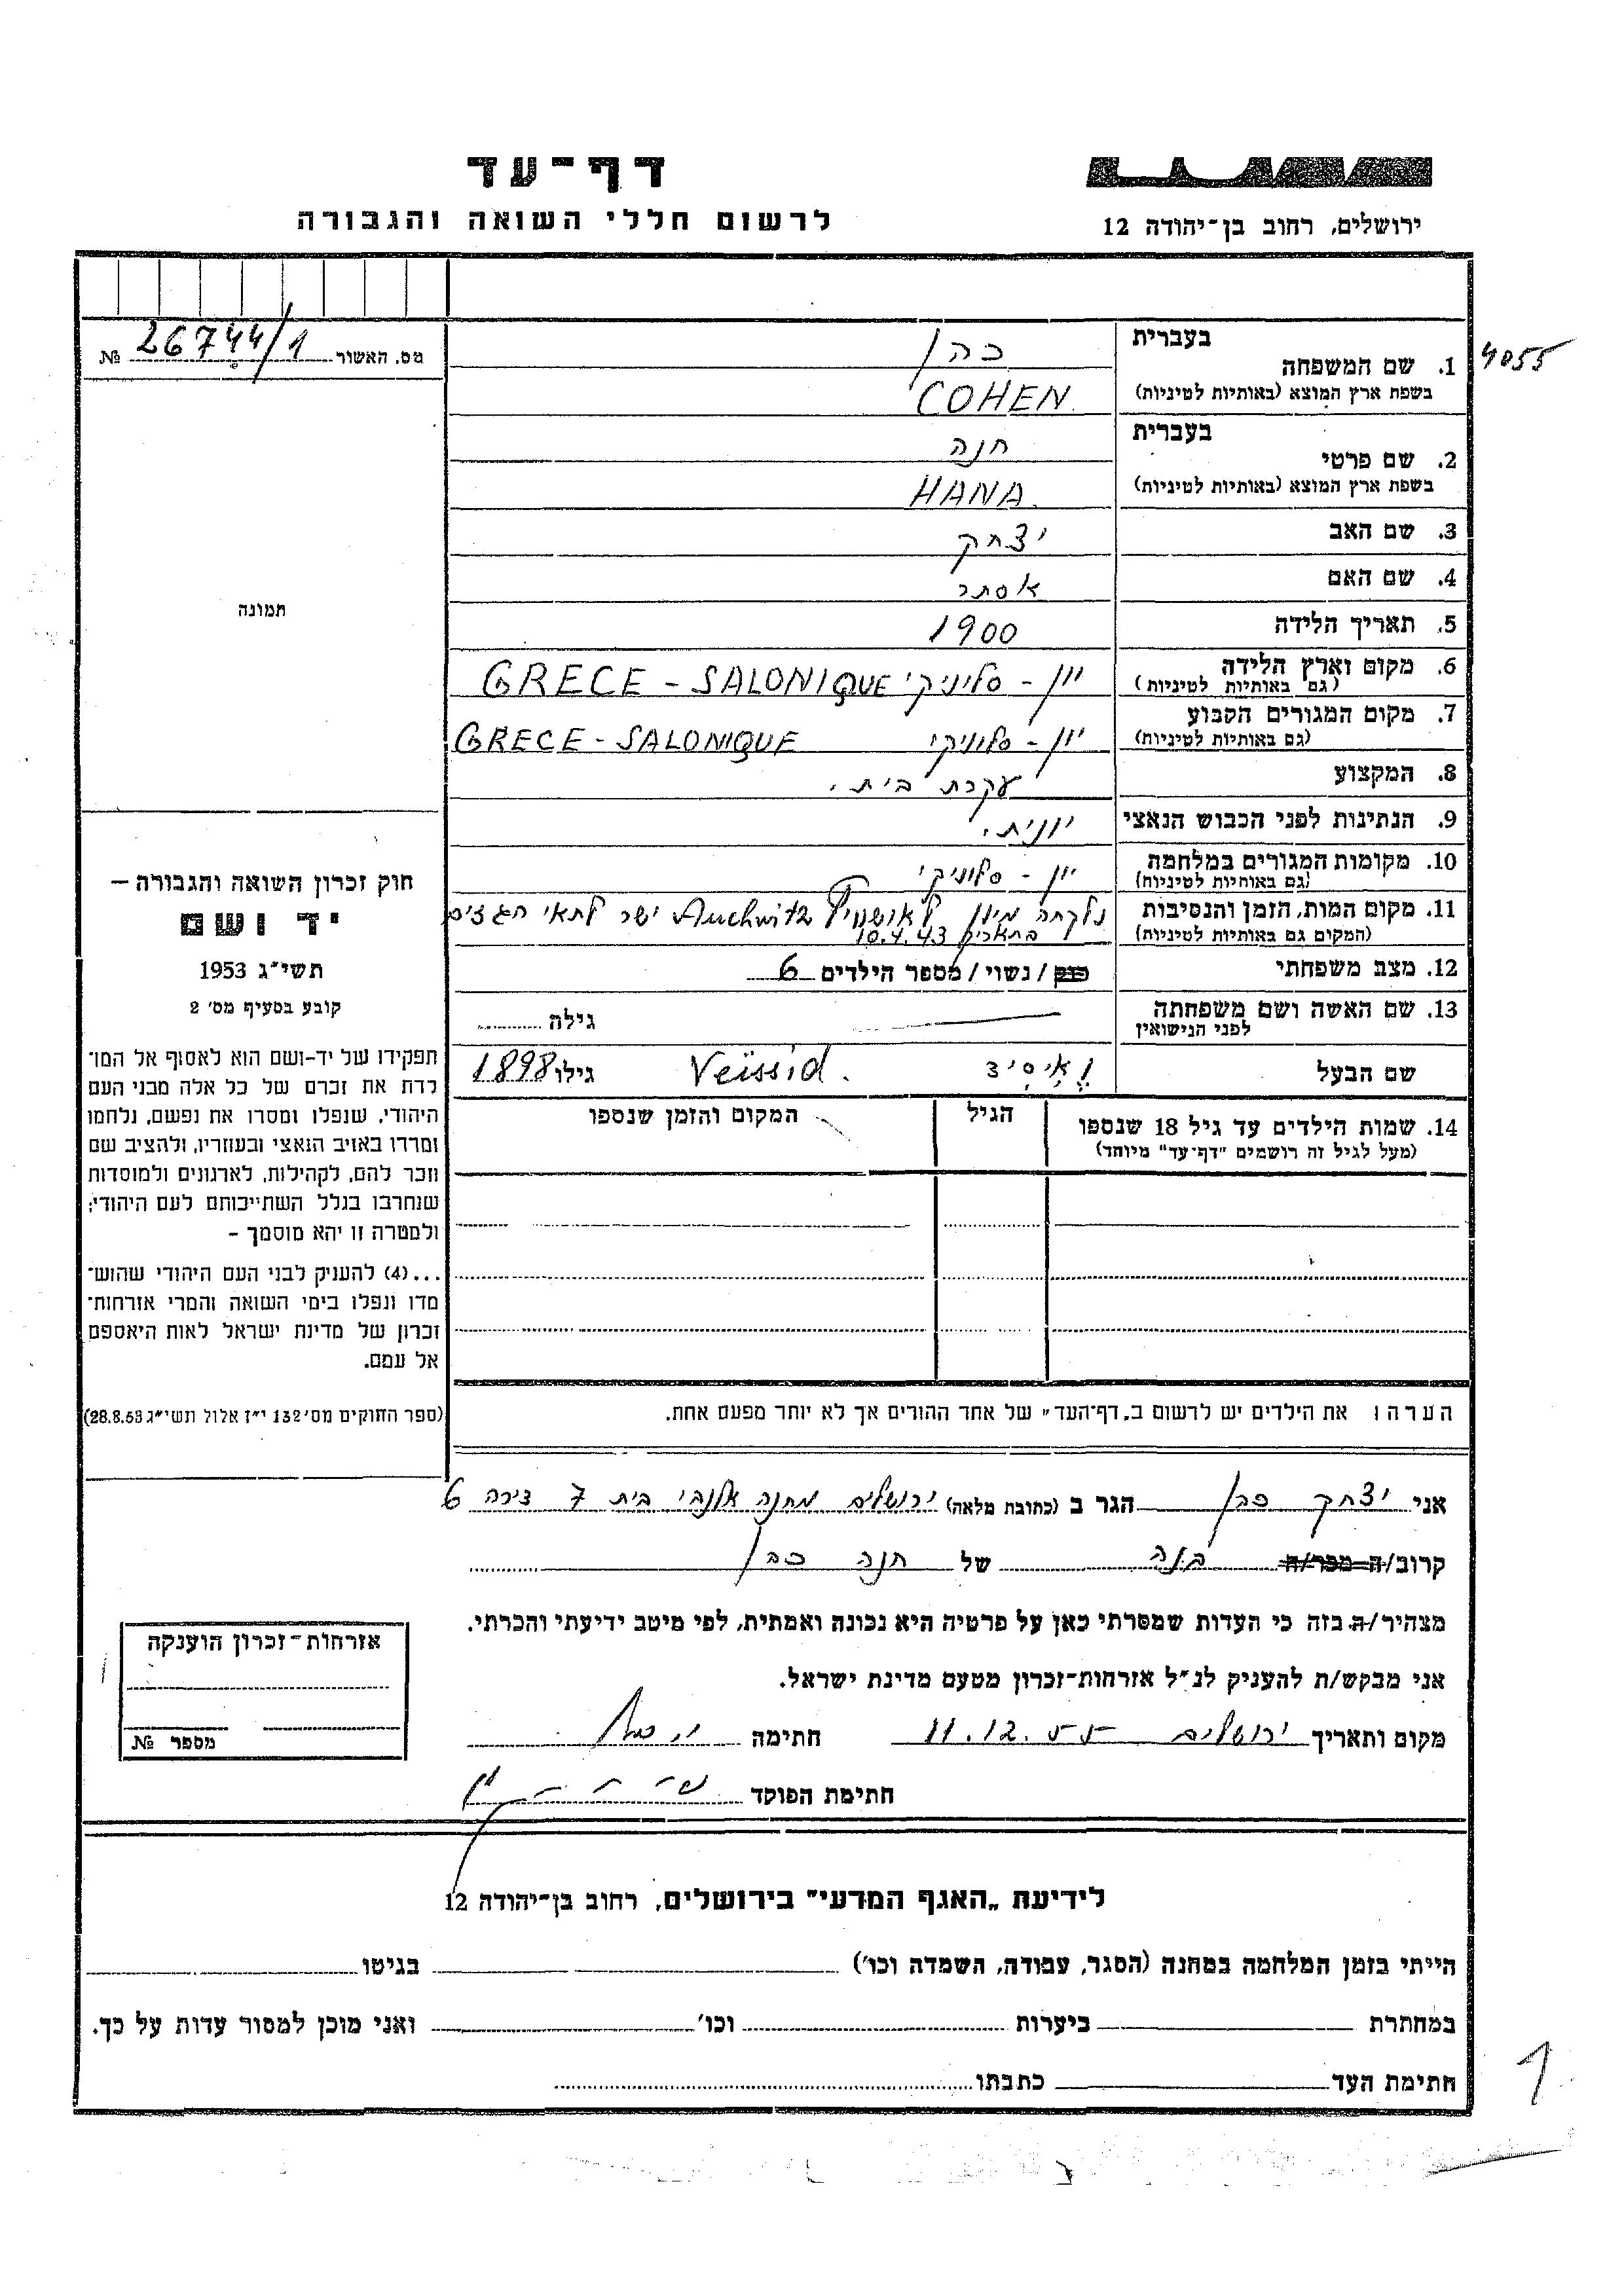 דף־עד
לרשום חללי השואה והגבורה
ירושלים, רחוב בן־יהודה 12
מס. האשור 26744/1 №
4055
בעברית
1. שם המשפחה כהן
בשפת ארץ המוצא (באותיות לטיניות) COHEN
בעברית
2. שם פרטי חנה
בשפת ארץ המוצא (באותיות לטיניות) HANA
3. שם האב יצחק
4. שם האם אסתר
5. תאריך הלידה 1900
6. מקום וארץ הלידה יון - סלוניקי GRECE - SALONIQUE
(גם באותיות לטיניות)
7. מקום המגורים הקבוע יון - סלוניקי GRECE - SALONIQUE
(גם באותיות לטיניות)
8. המקצוע עקרת בית.
9. הנתינות לפני הכבוש הנאצי יונית.
10. מקומות המגורים במלחמה יון - סלוניקי
(גם באותיות לטיניות)
11. מקום המות, הזמן והנסיבות נלקחה מיון לאושויץ Auchwitz ישר לתאי הגזים
(המקום גם באותיות לטיניות) בתאריך 10.4.43
12. מצב משפחתי רוק / נשוי / מספר הילדים 6
13. שם האשה ושם משפחתה גילה
לפני הנישואין
שם הבעל ואיסיד Veissid. גילו 1898
14. שמות הילדים עד גיל 18 שנספו הגיל המקום והזמן שנספו
(מעל לגיל זה רושמים "דף־עד" מיוחד)
הערה: את הילדים יש לרשום ב„דף־העד" של אחד ההורים אך לא יותר מפעם אחת.
תמונה
חוק זכרון השואה והגבורה —
יד ושם
תשי"ג 1953
קובע בסעיף מס' 2
תפקידו של יד-ושם הוא לאסוף אל המו־
לדת את זכרם של כל אלה מבני העם
היהודי, שנפלו ומסרו את נפשם, נלחמו
ומרדו באויב הנאצי ובעוזריו, ולהציב שם
וזכר להם, לקהילות, לארגונים ולמוסדות
שנחרבו בגלל השתייכותם לעם היהודי;
ולמטרה זו יהא מוסמך –
...(4) להעניק לבני העם היהודי שהוש־
מדו ונפלו בימי השואה והמרי אזרחות־
זכרון של מדינת ישראל לאות היאספם
אל עמם.
(ספר החוקים מס' 132 י"ז אלול תשי"ג 28.8.53)
אני יצחק כהן הגר ב (כתובת מלאה) ירושלים מחנה אלנבי בית 7 דירה 6
קרוב/ה מכר/ה בנה של חנה כהן
מצהיר/ה בזה כי העדות שמסרתי כאן על פרטיה היא נכונה ואמתית, לפי מיטב ידיעתי והכרתי.
אני מבקש/ת להעניק לנ"ל אזרחות־זכרון מטעם מדינת ישראל.
מקום ותאריך ירושלים 11.12.55 חתימה י. כהן
חתימת הפוקד
אזרחות־זכרון הוענקה
מספר №
לידיעת „האגף המדעי" בירושלים, רחוב בן־יהודה 12
הייתי בזמן המלחמה במחנה (הסגר, עבודה, השמדה וכו') בגיטו
במחתרת ביערות וכו' ואני מוכן למסור עדות על כך.
חתימת העד כתבתו
1